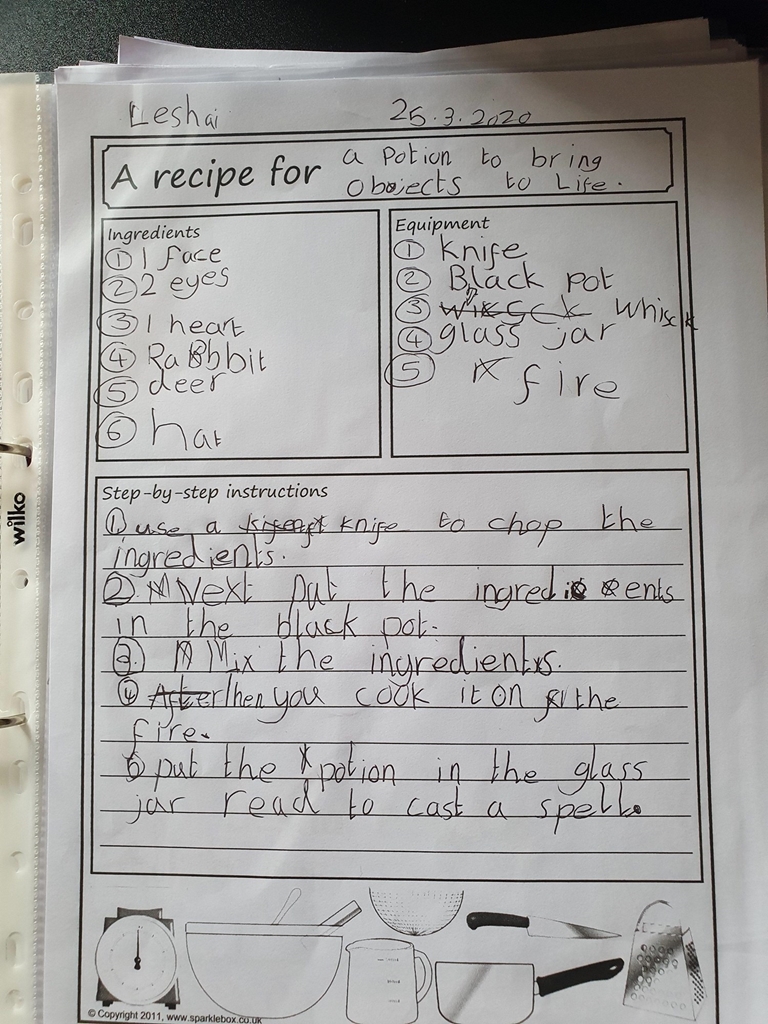 Leshai 25.3.2020
A recipe for a Potion to bring
Objects to Life.
Ingredients
① 1 face
② 2 eyes
③ 1 heart
④ Rabbit
⑤ deer
⑥ hat
Equipment
① knife
② Black pot
③ whisck
④ glass jar
⑤ fire
Step-by-step instructions
① use a knife to chop the
ingredients.
② Next put the ingredients
in the black pot.
③ Mix the ingredients.
④ Then you cook it on the
fire.
5 put the potion in the glass
jar read to cast a spell.
wilko
© Copyright 2011, www.sparklebox.co.uk